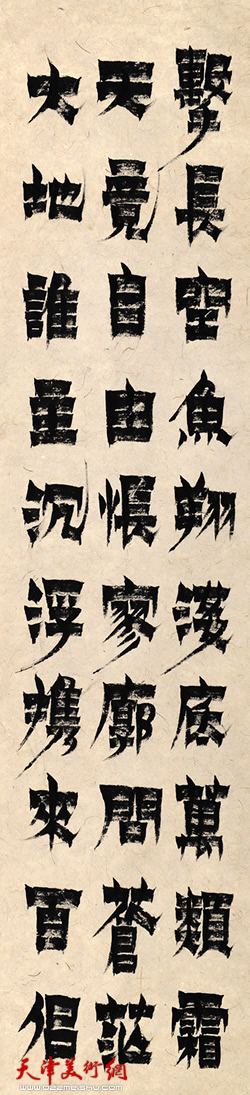 擊長空魚翔淺底萬類霜
天竟自由悵寥廓問蒼茫
大地誰主沉浮携來百侶
天津美術網
www.022meishu.com